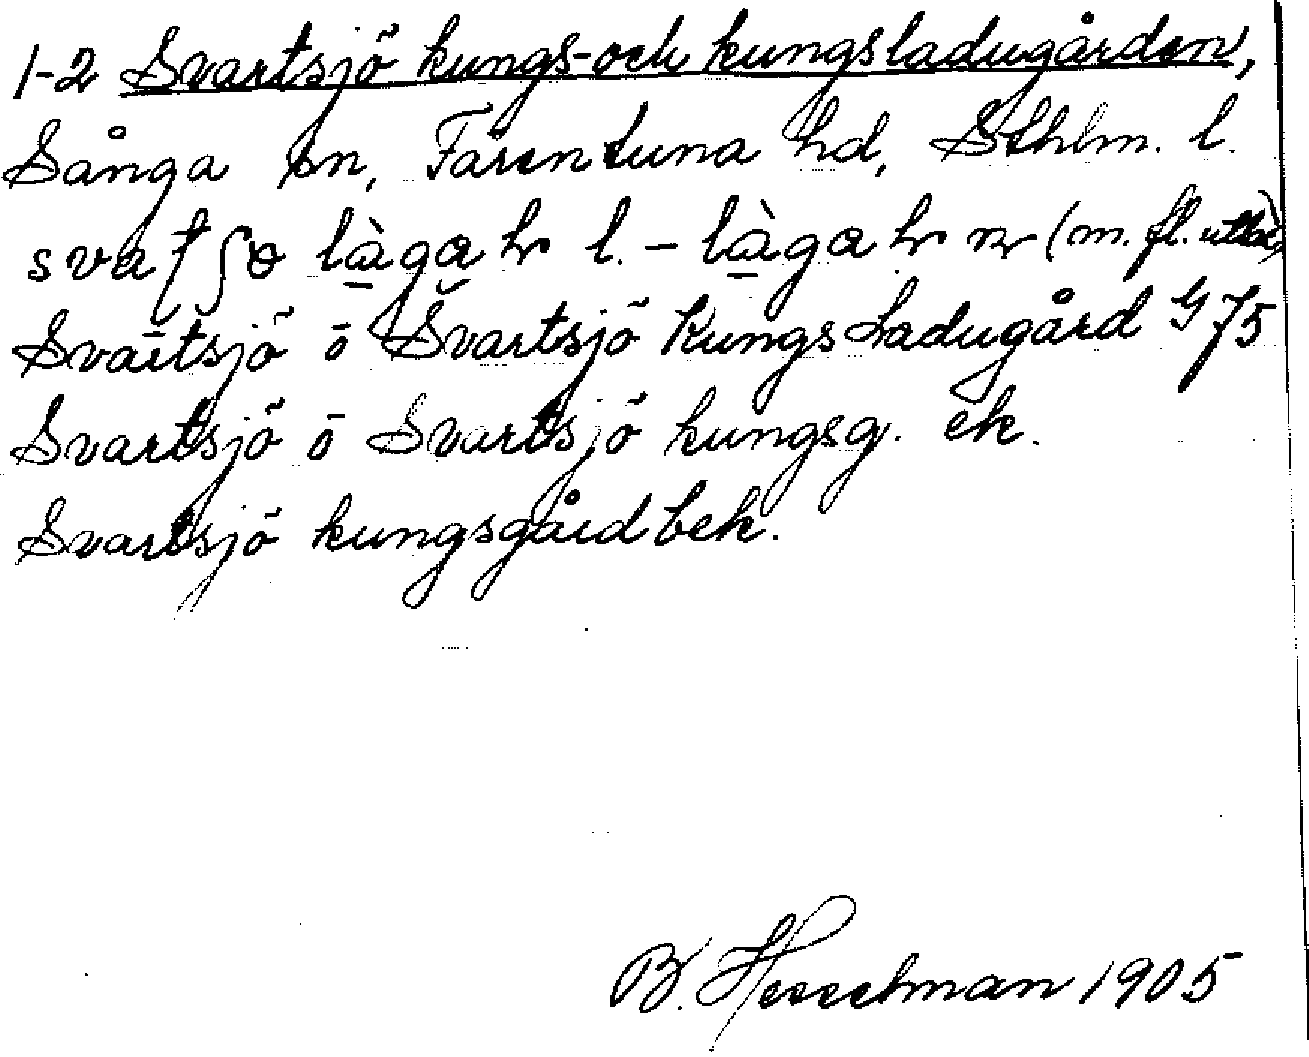 1-2 Svartsjö kungs- och kungsladugården,
Sånga sn, Färentuna hd, Sthlm. l.
l. -
Svartsjö o Svartsjö Kungs Ladugård G 75
Svartsjö o Svartsjö kungsg. ek.
Svartsjö kungsgård bek.
B. Hesselman 1905